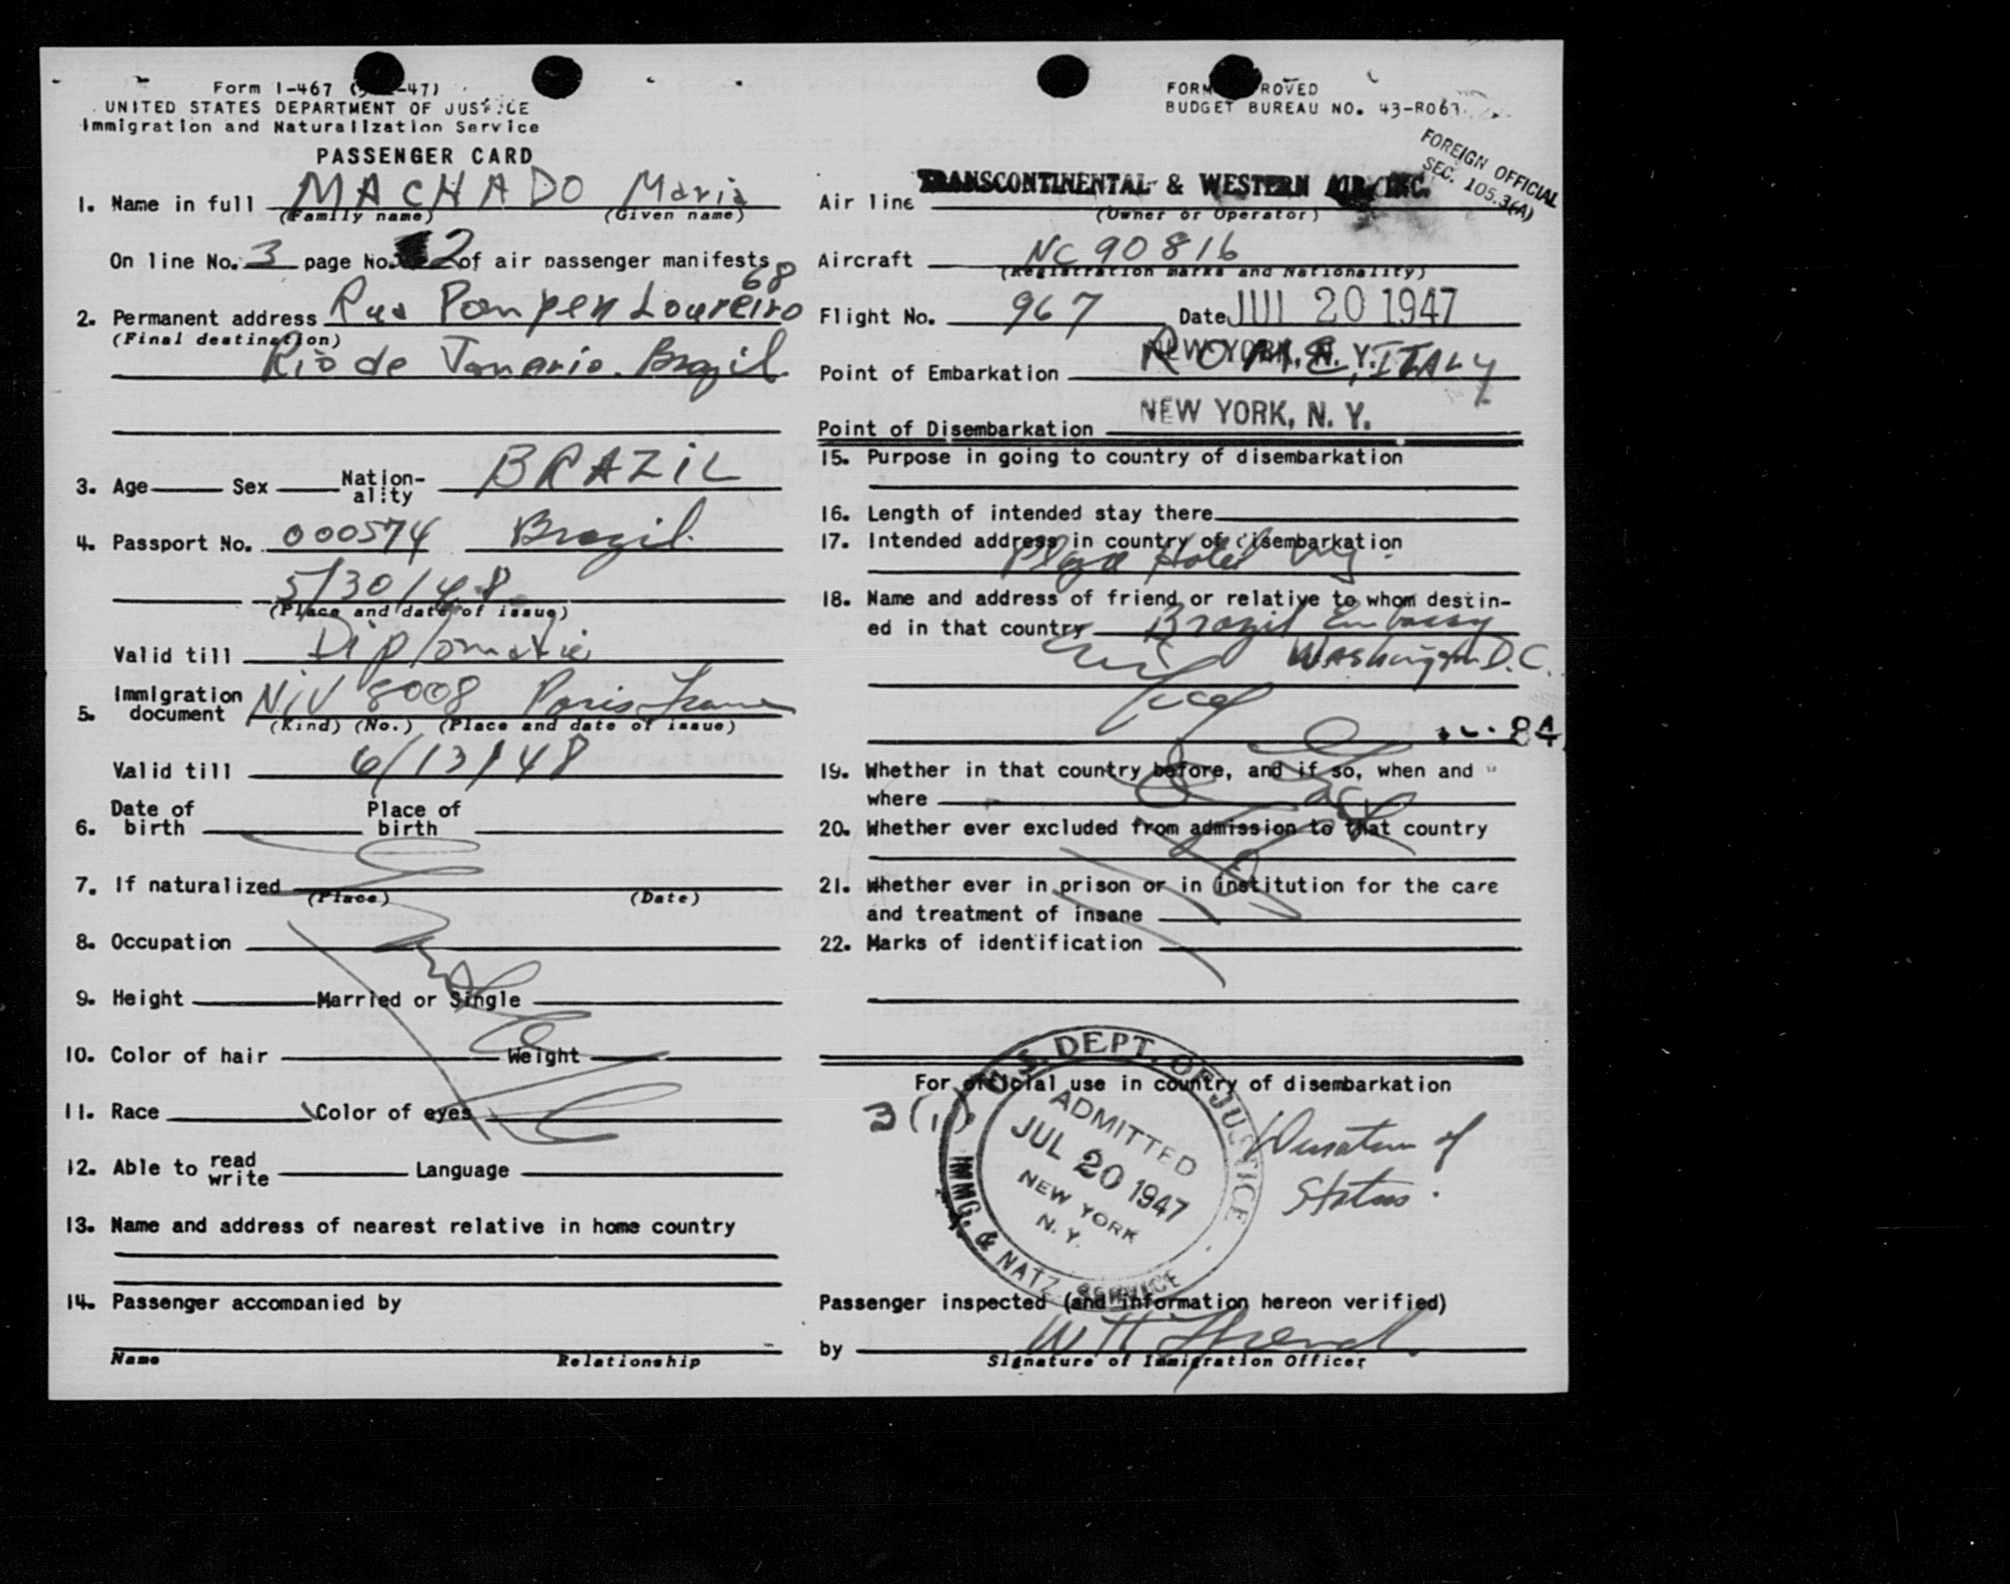 Form I-467 ( -47)
UNITED STATES DEPARTMENT OF JUSTICE
Immigration and Naturalization Service
PASSENGER CARD
FORM ROVED
BUDGET BUREAU NO. 43-R063
FOREIGN OFFICIAL
SEC. 105.3(A)
1. Name in full MACHADO Maria
(Family name) (Given name)
On line No. 3 page No. 2 of air passenger manifests
68
2. Permanent address Rua Pompeu Loureiro
(Final destination)
Rio de Janerio. Brazil
3. Age Sex Nation-ality BRAZIL
4. Passport No. 000574 Brazil.
5/30/48
(Place and date of issue)
Valid till Diplomatic
5. Immigration document NIV 8008 Paris France
(Kind) (No.) (Place and date of issue)
Valid till 6/13/48
6. Date of birth Place of birth
7. If naturalized
(Place) (Date)
8. Occupation
9. Height Married or Single
10. Color of hair Weight
11. Race Color of eyes
12. Able to read write Language
13. Name and address of nearest relative in home country
14. Passenger accompanied by
Name Relationship
Air line TRANSCONTINENTAL & WESTERN AIR, INC.
(Owner or Operator)
Aircraft NC 90816
(Registration marks and Nationality)
Flight No. 967 Date JUL 20 1947
NEW YORK, N. Y.
Point of Embarkation ROME, ITALY
Point of Disembarkation NEW YORK, N. Y.
15. Purpose in going to country of disembarkation
16. Length of intended stay there
17. Intended address in country of disembarkation
Plaza Hotel NY.
18. Name and address of friend or relative to whom destin-
ed in that country Brazil Embassy
Washington D.C.
84
19. Whether in that country before, and if so, when and
where
20. Whether ever excluded from admission to that country
21. Whether ever in prison or in institution for the care
and treatment of insane
22. Marks of identification
For official use in country of disembarkation
3(1)
U.S. DEPT. OF JUSTICE
ADMITTED
JUL 20 1947
NEW YORK
N. Y.
IMMG. & NATZ. SERVICE
Duration of
Status.
Passenger inspected (and information hereon verified)
by
Signature of Immigration Officer